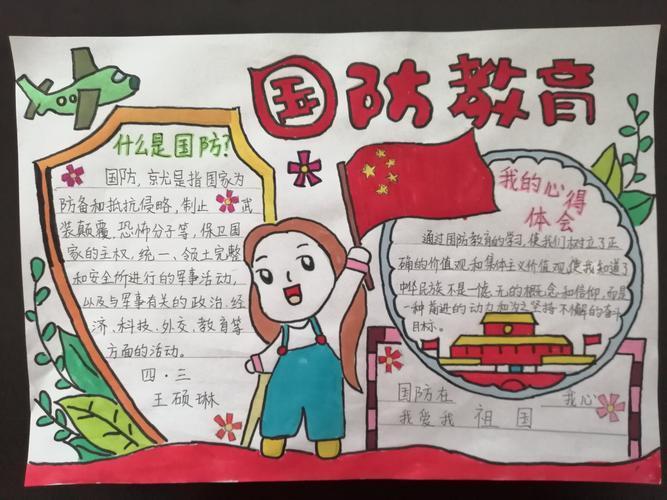 国防教育
什么是国防?
国防,就是指国家为
防备和抵抗侵略,制止 武
装颠覆、恐怖分子等,保卫国
家的主权,统一、领土完整
和安全所进行的军事活动,
以及与军事有关的政治、经
济、科技、外交、教育等
方面的活动。
四·三
王硕琳
我的心得
体会
通过国防教育的学习,使我们树立了正
确的价值观和集体主义价值观,使我知道了
中华民族不是一 无的概念和信仰,而是
一种前进的动力和为之坚持不懈的奋斗
目标。
国防在 我心
我爱我 祖国